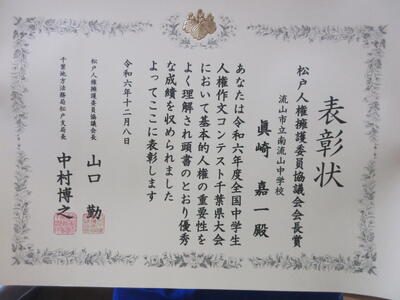 表彰状
松戸人権擁護委員協議会会長賞
流山市立南流山中学校
眞崎嘉一殿
あなたは令和六年度全国中学生
人権作文コンテスト千葉県大会
において基本的人権の重要性を
よく理解され頭書のとおり優秀
な成績を収められました
よってここに表彰します
令和六年十二月八日
松戸人権擁護委員協議会長
山口勤
千葉地方法務局松戸支局長
中村博之